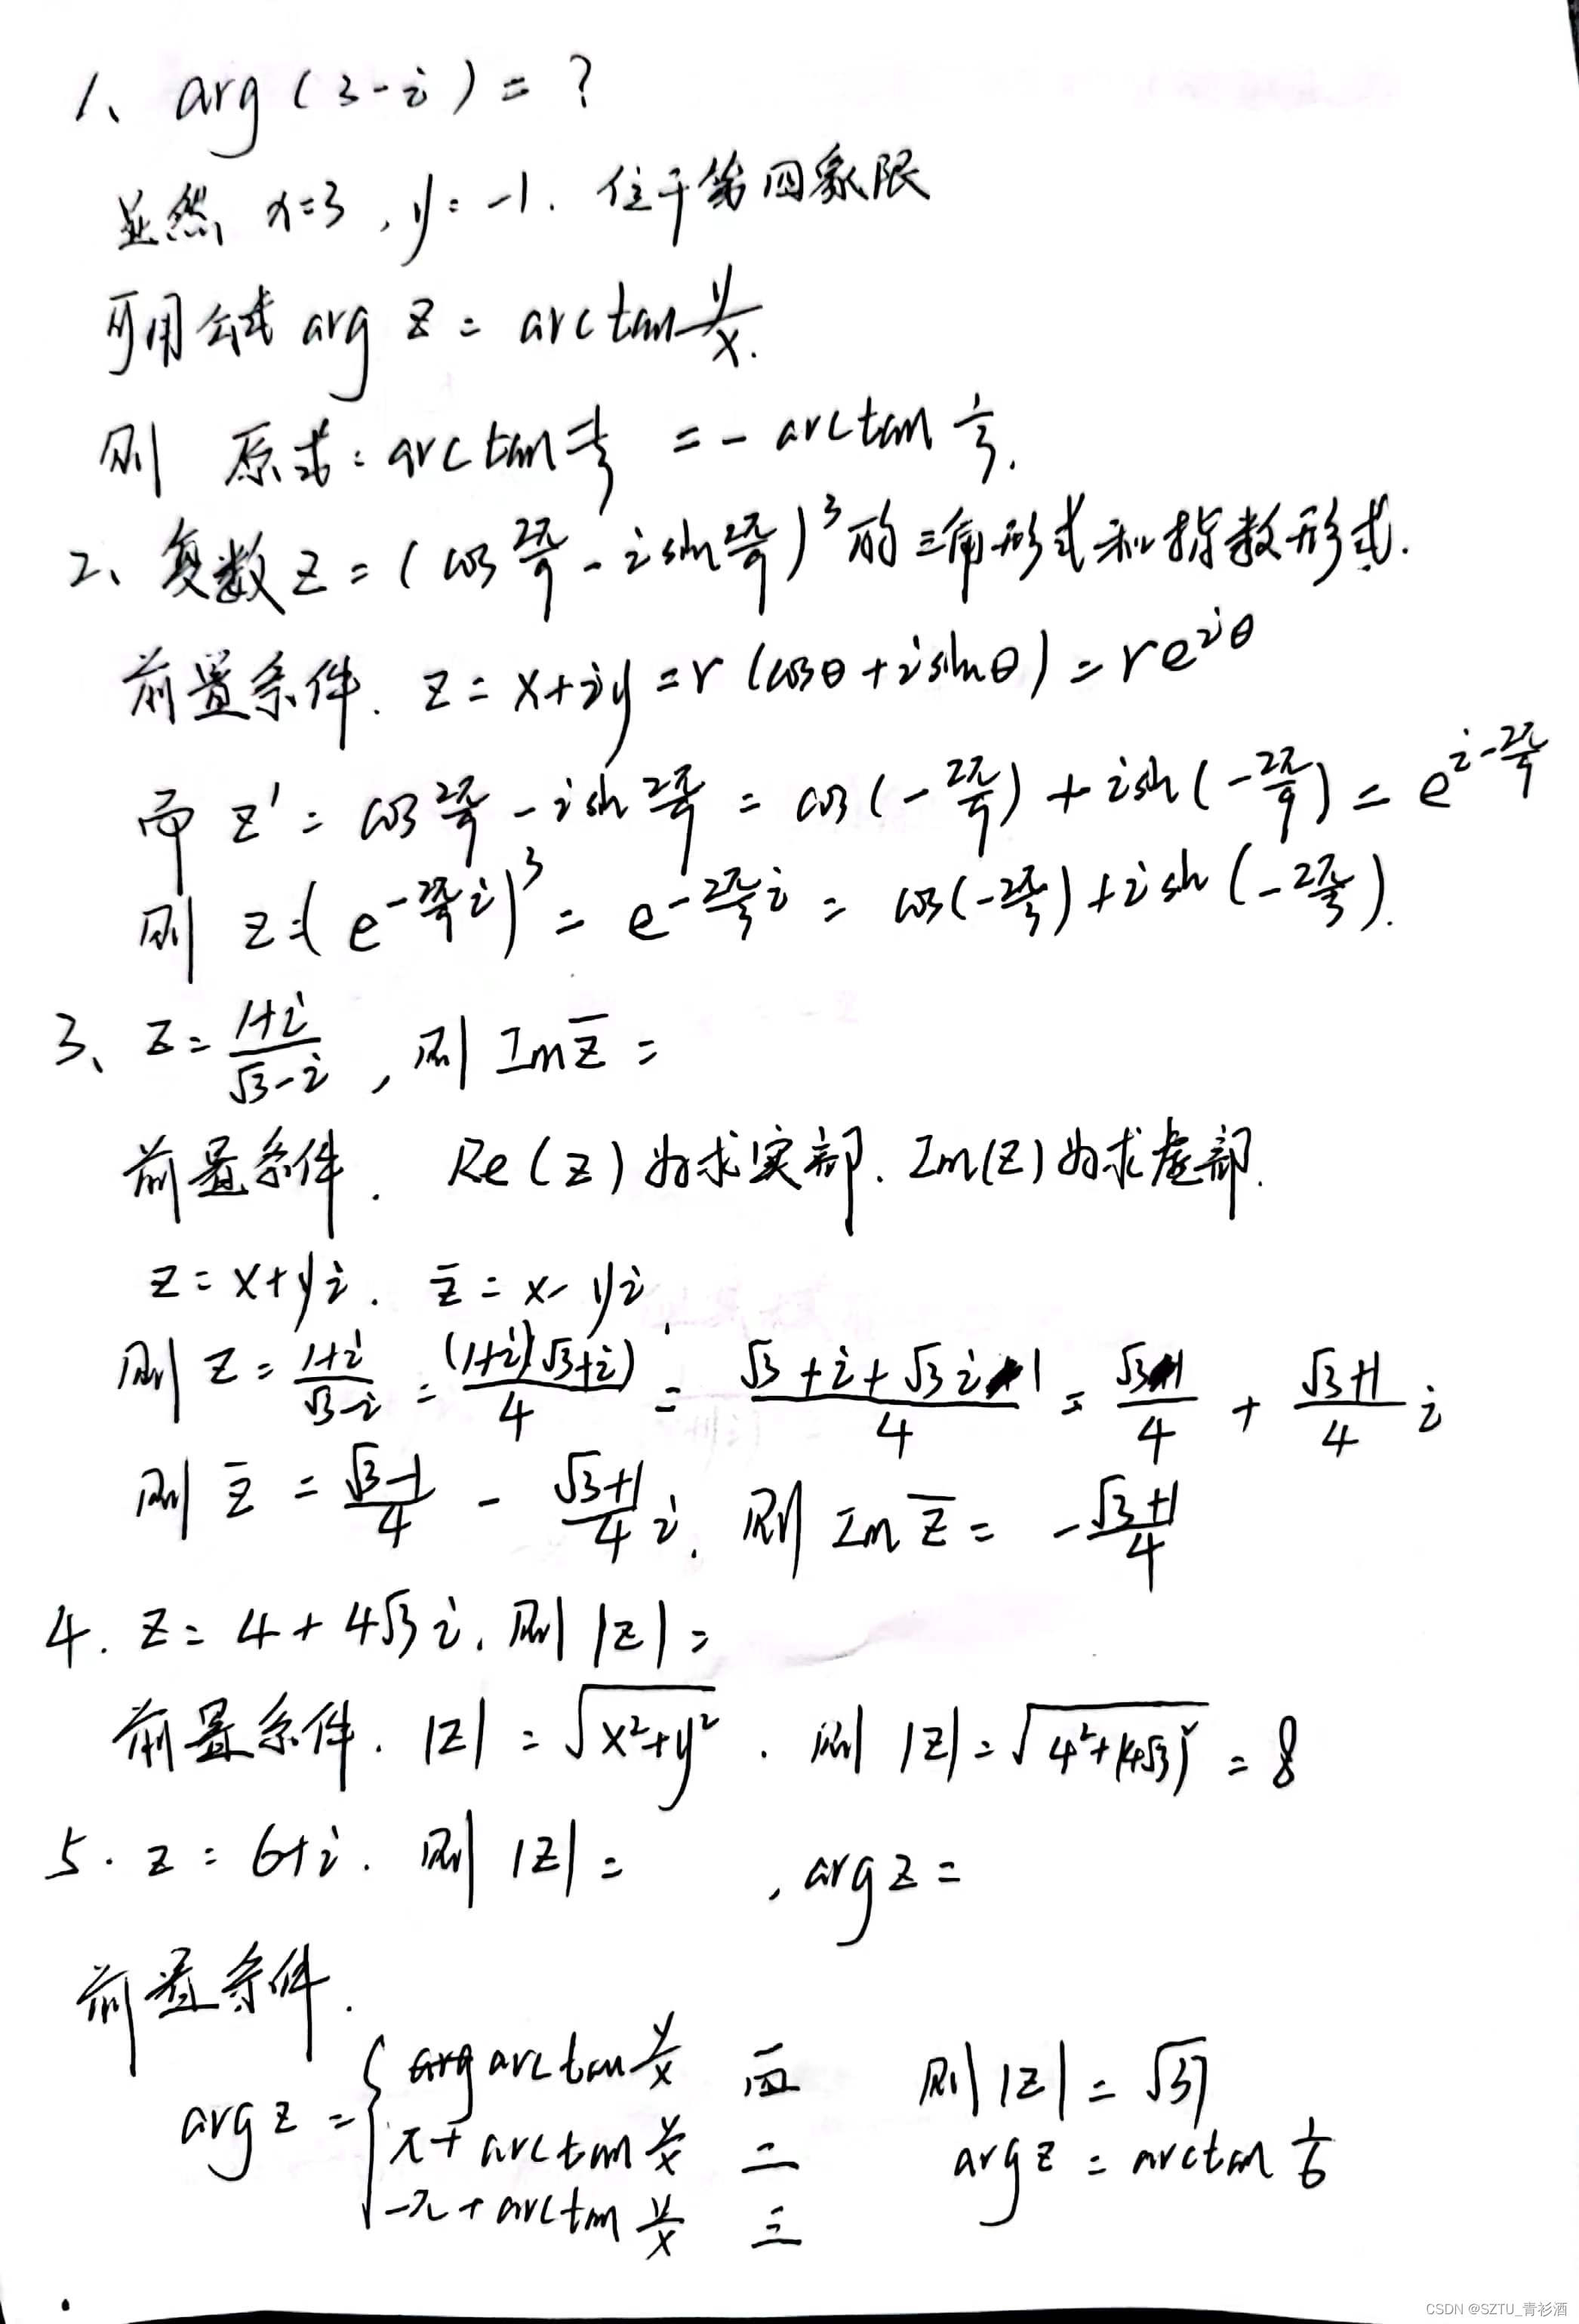 1、 arg (3-i) = ?
显然 x=3 , y= -1. 位于第四象限
可用公式 arg z = arctan y/x.
则 原式 = arctan -1/3 = - arctan 1/3.
2、复数 z = (cos 2π/9 - i sin 2π/9)³ 的三角形式和指数形式.
前置条件. z = x+iy = r (cosθ + i sinθ) = re^{iθ}
而 z' = cos 2π/9 - i sin 2π/9 = cos (- 2π/9) + i sin (- 2π/9) = e^{i - 2π/9}
则 z = (e^{-2π/9 i})³ = e^{-2π/3 i} = cos(-2π/3) + i sin (-2π/3).
3、 z = (1+i)/(√3-i) , 则 Im z̄ =
前置条件. Re (z) 为求实部. Im(z) 为求虚部.
z = x+yi. z̄ = x-yi
则 z = (1+i)/(√3-i) = (1+i)(√3+i)/4 = (√3+i+√3i-1)/4 = (√3-1)/4 + (√3+1)/4 i
则 z̄ = (√3-1)/4 - (√3+1)/4 i. 则 Im z̄ = -(√3+1)/4
4. z = 4+4√3 i. 则 |z| =
前置条件. |z| = √(x²+y²) . 则 |z| = √(4²+(4√3)²) = 8
5. z = 6+i. 则 |z| = , arg z =
前置条件.
arctan y/x 一四 则 |z| = √37
arg z = { π + arctan y/x 二 arg z = arctan 1/6
-π + arctan y/x 三
CSDN @SZTU_青衫酒